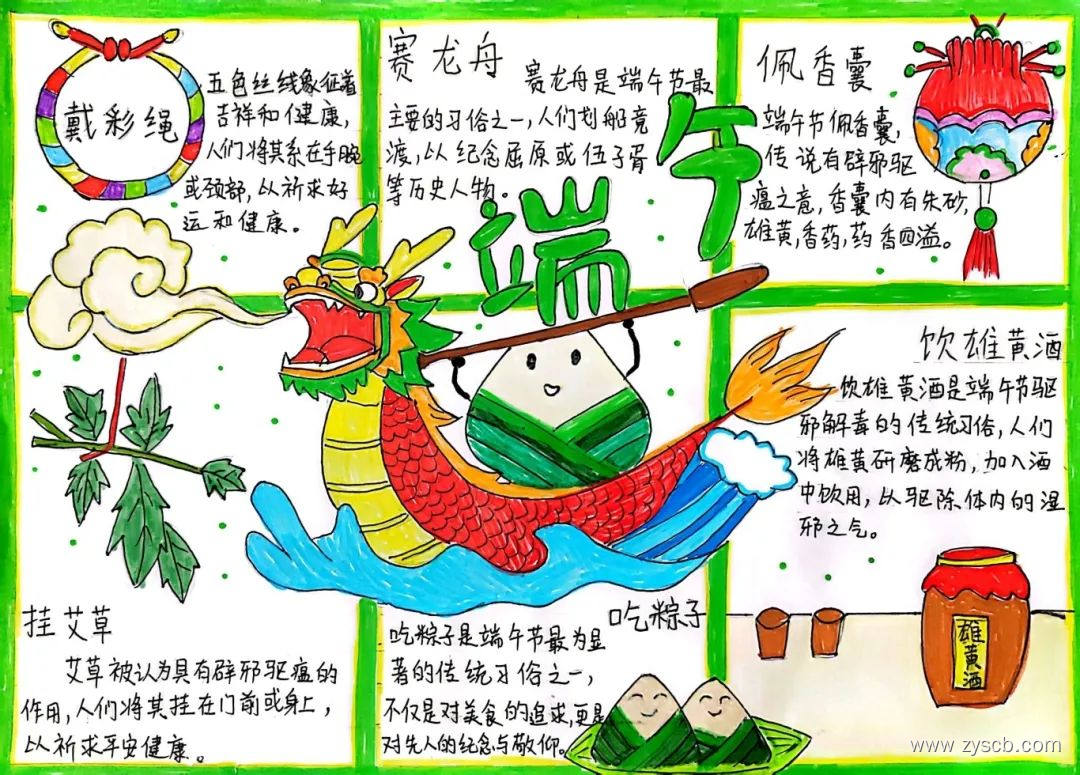 戴彩绳
五色丝线象征着
吉祥和健康，
人们将其系在手腕
或颈部，以祈求好
运和健康。
赛龙舟
赛龙舟是端午节最
主要的习俗之一，人们划船竞
渡，以纪念屈原或伍子胥
等历史人物。
端午
佩香囊
端午节佩香囊，
传说有辟邪驱
瘟之意，香囊内有朱砂，
雄黄，香药，药香四溢。
饮雄黄酒
饮雄黄酒是端午节驱
邪解毒的传统习俗，人们
将雄黄研磨成粉，加入酒
中饮用，以驱除体内的湿
邪之气。
雄黄酒
挂艾草
艾草被认为具有辟邪驱瘟的
作用，人们将其挂在门前或身上，
以祈求平安健康。
吃粽子
吃粽子是端午节最为显
著的传统习俗之一，
不仅是对美食的追求，更是
对先人的纪念与敬仰。
www.zyscb.com